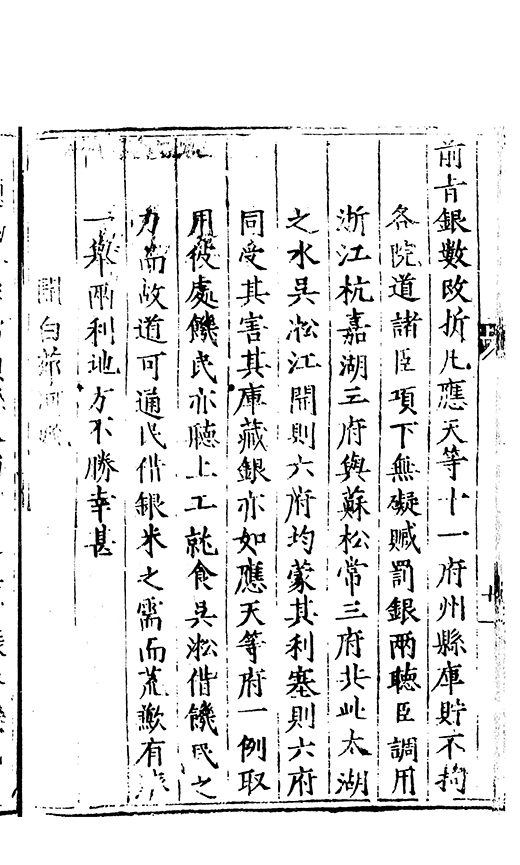 前旨銀數改折凡應天等十一府州縣庫貯不拘
各院道諸臣項下無礙贓罰銀兩聽臣調用
浙江杭嘉湖三府與蘇松常三府共此太湖
之水吳淞江開則六府均蒙其利塞則六府
同受其害其庫藏銀亦如應天等府一例取
用彼處饑民亦聽上工就食吳淞借饑民之
力而故道可通民借銀米之需而荒歉有
一舉兩利地方不勝幸甚
開白茆河